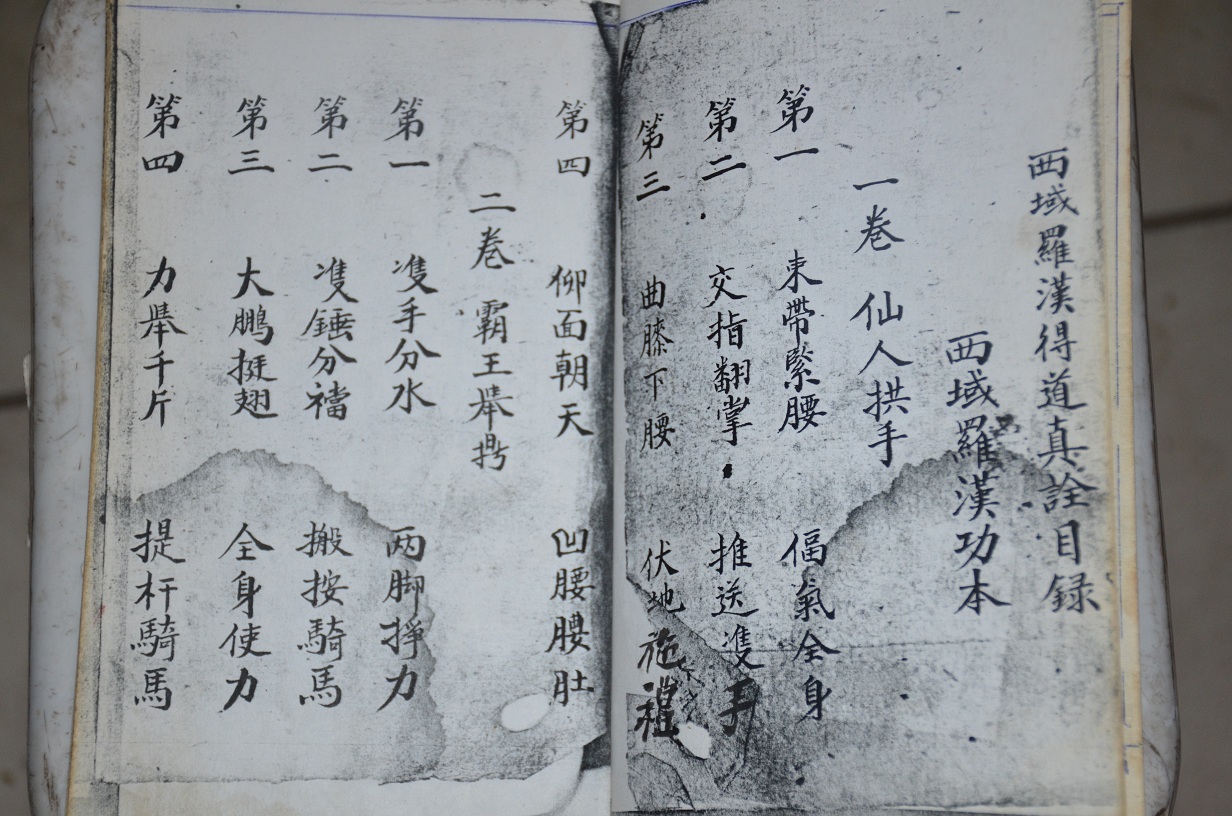 西域羅漢得道真詮目録
西域羅漢功本
一卷 仙人拱手
第一 束帶緊腰 偪氣全身
第二 交指翻掌 推送隻手
第三 曲膝下腰 伏地施禮
第四 仰面朝天 凹腰腰肚
二卷 霸王舉鼎
第一 隻手分水 两脚掙力
第二 隻錘分襠 搬按騎馬
第三 大鵬挺翅 全身使力
第四 力舉千斤 提杆騎馬